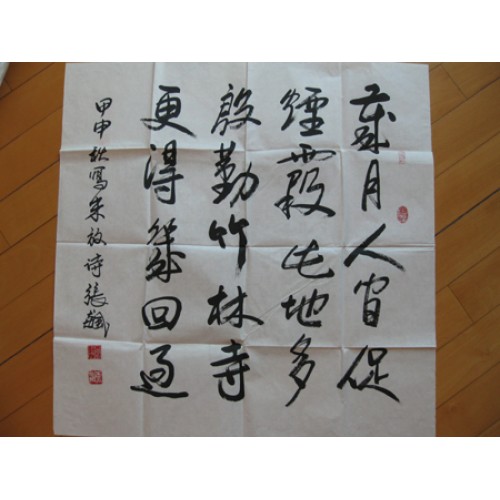 歲月人間促
煙霞此地多
殷勤竹林寺
更得幾回過
甲申秋寫朱放诗張